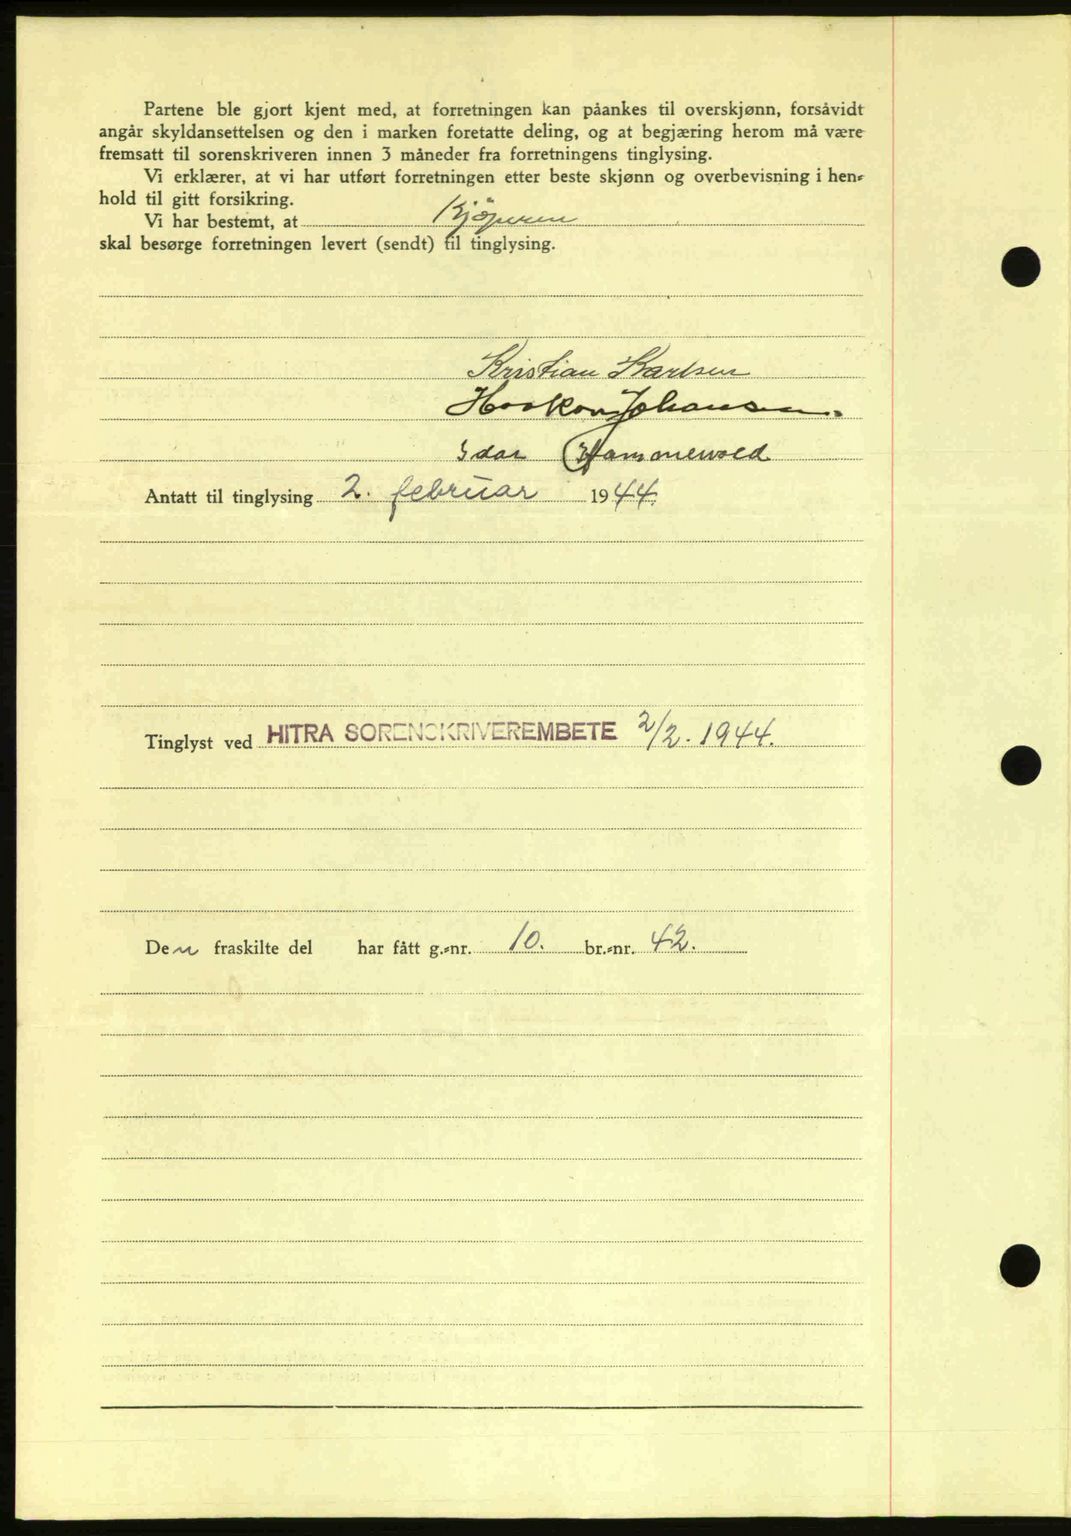 Partene ble gjort kjent med, at forretningen kan påankes til overskjønn, forsåvidt
angår skyldansettelsen og den i marken foretatte deling, og at begjæring herom må være
fremsatt til sorenskriveren innen 3 måneder fra forretningens tinglysing.
Vi erklærer, at vi har utført forretningen etter beste skjønn og overbevisning i hen-
hold til gitt forsikring.
Vi har bestemt, at Kjöperen
skal besørge forretningen levert (sendt) til tinglysing.
Kristian Karlsen
Haakon Johansen.
Idar Hammervold
Antatt til tinglysing 2. februar 1944.
Tinglyst ved HITRA SORENSKRIVEREMBETE 2/2. 1944.
Den fraskilte del har fått g.-nr. 10. br.-nr. 42.